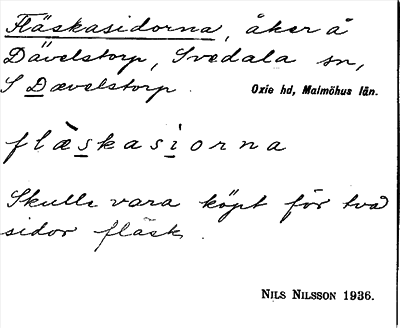 Fläskasidorna, åker å
Dävelstorp, Svedala sn,
S Dævelstorp. Oxie hd, Malmöhus län.
flæ̀skasiorna
Skulle vara köpt för två
sidor fläsk.
NILS NILSSON 1936.